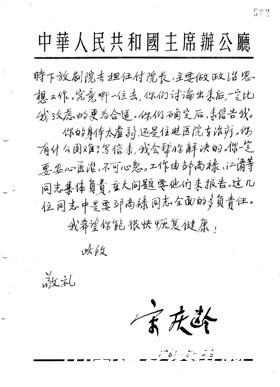 中華人民共和國主席辦公廳
时下放剧院去担任付院长,主要做政治思
想工作。究竟哪一位去,你们讨论出来后,一定比
我考虑的要为合适。你们确定后,来信告我。
你的身体太虚弱,还是住进医院去治疗,你
有什么困难?写信来,我会帮你解决的。你一定
要安心医治,不可心急。工作由邹尚禄、江
同志集体负责,重大问题要他们来报告。这几
位同志中是要邹尚禄同志全面的多负责任。
我希望你能很快恢复健康!
此致
敬礼
宋庆龄